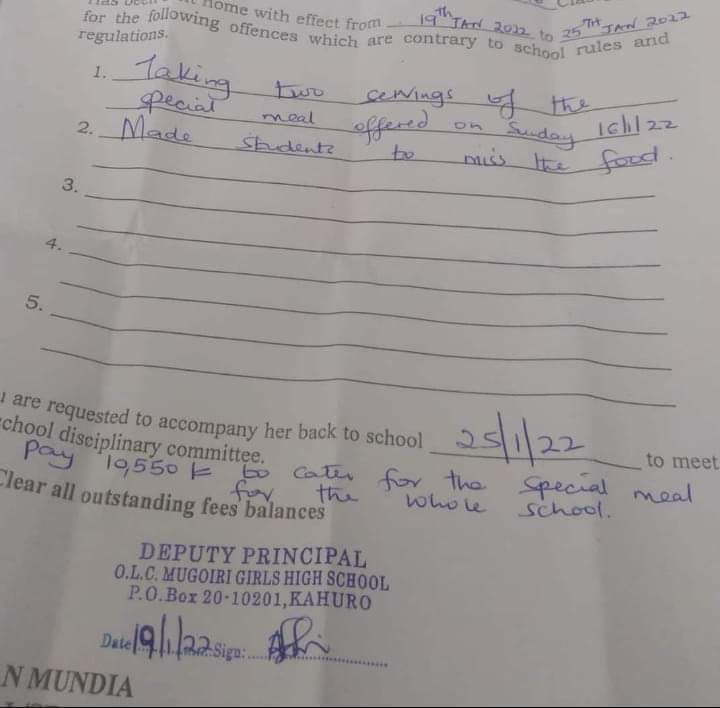 home with effect from 19th JAN 2022 to 25TH JAN 2022
for the following offences which are contrary to school rules and
regulations.
1. Taking two servings of the
special meal offered on Sunday 16/1/22
2. Made students to miss the food.
3.
4.
5.
are requested to accompany her back to school 25/1/22 to meet
school disciplinary committee.
Pay 19,550 k to cater for the special meal
for the whole school.
Clear all outstanding fees balances
DEPUTY PRINCIPAL
O.L.C. MUGOIRI GIRLS HIGH SCHOOL
P.O.Box 20-10201, KAHURO
Date 19/1/22 Sign:
N MUNDIA